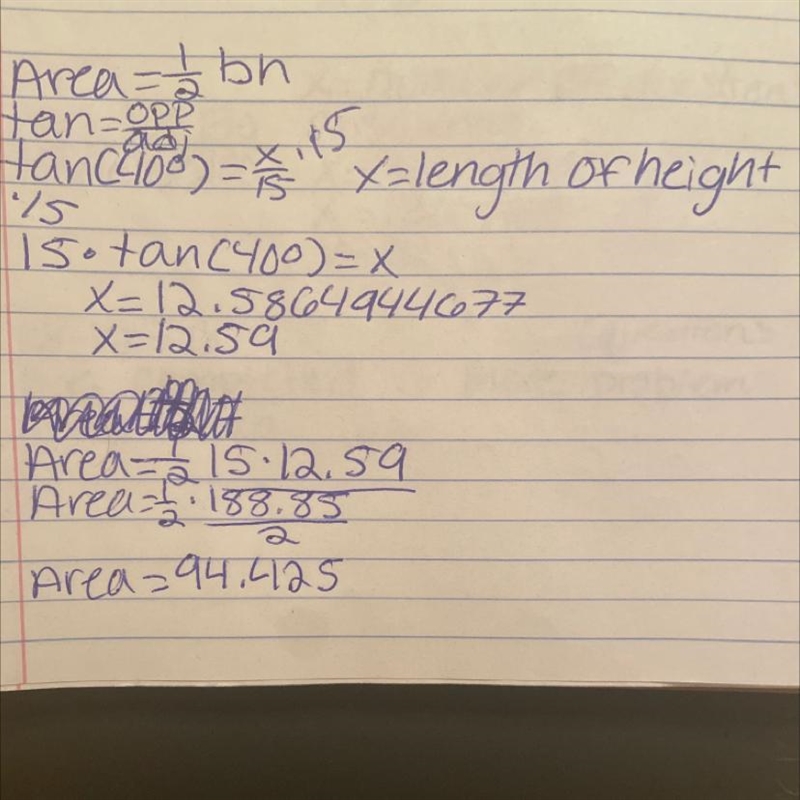 Area = 1/2 bh
tan = opp/adj
tan(40°) = x/15 · 15 x = length of height
· 15
15 · tan(40°) = x
x = 12.5864944677
x = 12.59
Area = 1/2 15 · 12.59
Area = 1/2 · 188.85/2
Area = 94.425